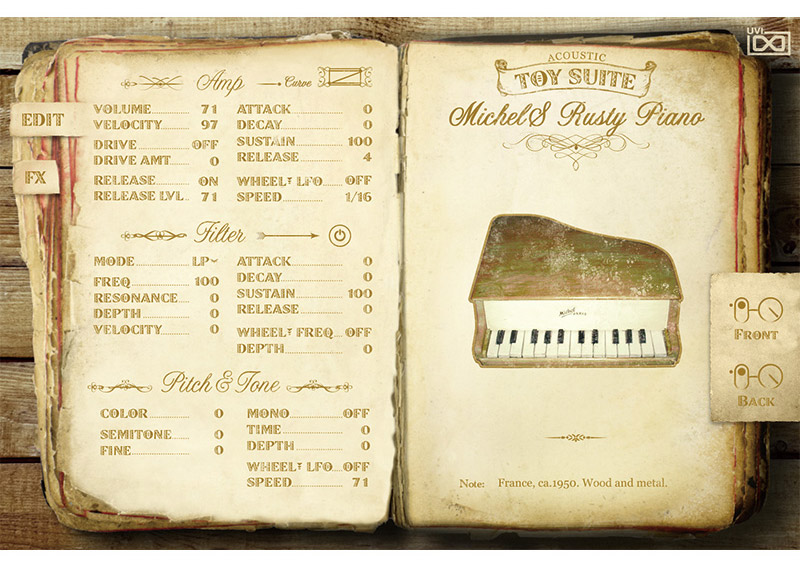 UVI
EDIT
FX
Amp Curve
VOLUME 71 ATTACK 0
VELOCITY 97 DECAY 0
DRIVE OFF SUSTAIN 100
DRIVE AMT 0 RELEASE 4
RELEASE ON WHEEL LFO OFF
RELEASE LVL 71 SPEED 1/16
Filter
MODE LP ATTACK 0
FREQ 100 DECAY 0
RESONANCE 0 SUSTAIN 100
DEPTH 0 RELEASE 0
VELOCITY 0 WHEEL FREQ OFF
DEPTH 0
Pitch & Tone
COLOR 0 MONO OFF
SEMITONE 0 TIME 0
FINE 0 DEPTH 0
WHEEL LFO OFF
SPEED 71
ACOUSTIC
TOY SUITE
Michel$ Rusty Piano
Michel
FRONT
BACK
Note: France, ca.1950. Wood and metal.